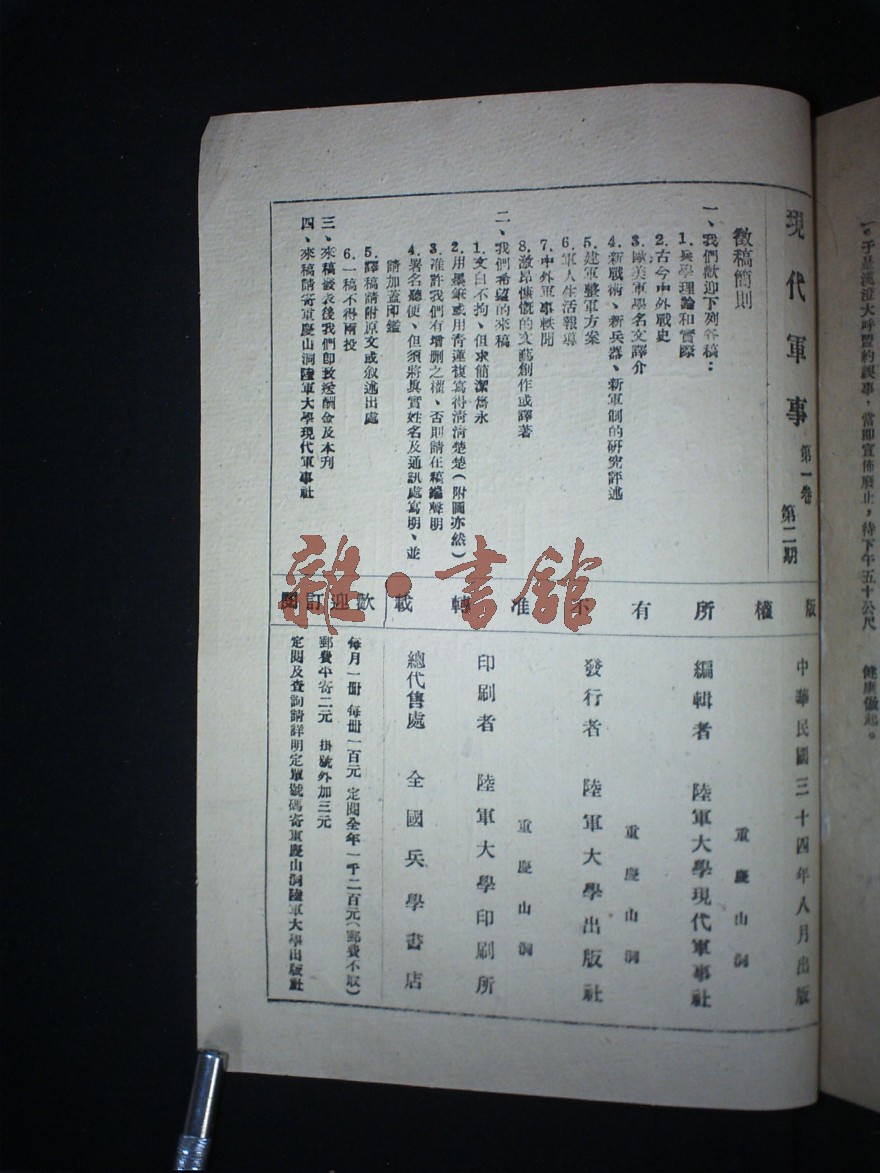 現代軍事 第一卷 第二期
徵稿簡則
一、我們歡迎下列各稿：
1.兵學理論和實際
2.古今中外戰史
3.歐美軍學名文譯介
4.新戰術、新兵器、新軍制的研究評述
5.建軍整軍方案
6.軍人生活報導
7.中外軍事軼聞
8.激昂慷慨的文藝創作或譯著
二、我們希望的來稿
1.文白不拘、但求簡潔雋永
2.用墨筆或用青蓮複寫得清清楚楚（附圖亦然）
3.准許我們有增删之權、否則請在稿端聲明
4.署名聽便、但須將眞實姓名及通訊處寫明、並
請加蓋印鑑
5.譯稿請附原文或叙述出處
6.一稿不得兩投
三、來稿發表後我們即致送酬金及本刊
四、來稿請寄重慶山洞陸軍大學現代軍事社
版權所有不准轉載
歡迎訂閱
中華民國三十四年八月出版
重慶山洞
編輯者 陸軍大學現代軍事社
重慶山洞
發行者 陸軍大學出版社
重慶山洞
印刷者 陸軍大學印刷所
總代售處 全國兵學書店
每月一冊 每冊一百元 定閱全年一千二百元（郵費不取）
郵費平寄二元 掛號外加三元
定閱及查詢請詳明定單號碼寄重慶山洞陸軍大學出版社
大呼盟約誤事，當即宣佈廢止，待下午五十公尺
健康做起。
雜·書館